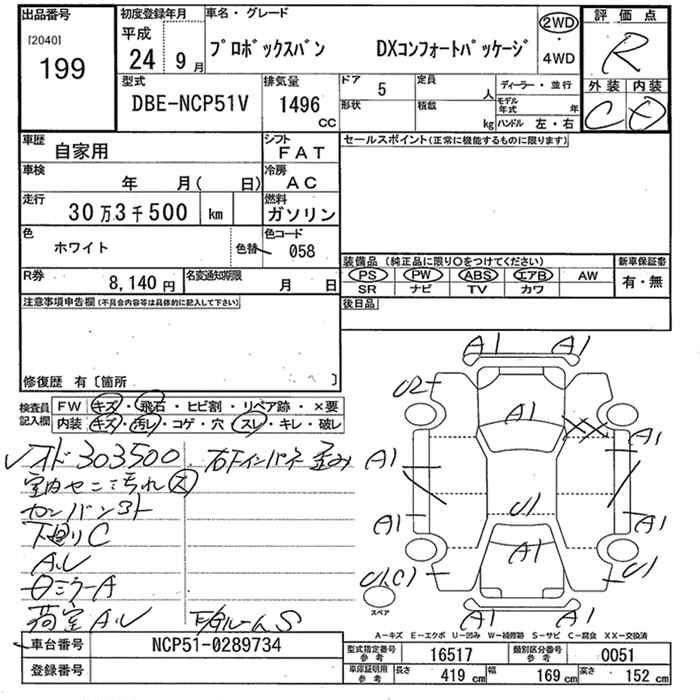 出品番号 初度登録年月 車名・グレード 評価点
[2040] 平成 2WD
199 24 9月 プロボックスバン DXコンフォートパッケージ 4WD R
型式 排気量 ドア 定員 ディーラー・並行 外装 内装
DBE-NCP51V 1496 CC 5 人 モデル年式 年 C D
形状 積載 kg ハンドル 左・右
車歴 シフト セールスポイント(正常に機能するものに限ります)
自家用 FAT
車検 冷房
年 月( 日) AC
走行 燃料
30万3千500 km ガソリン
色 色替 色コード 装備品 (純正品に限り○をつけてください) 新車保証書
ホワイト 058 PS PW ABS エアB AW 有・無
R券 8,140円 名変通知期限 月 日 SR ナビ TV カワ
注意事項申告欄(不具合内容等は具体的に記入して下さい) 後日品
修復歴 有〔箇所 〕
検査員 FW キズ・飛石・ヒビ割・リペア跡・×要
記入欄 内装 キズ・汚レ・コゲ・穴・スレ・キレ・破レ
303500 右Fインパネ歪み
下廻りC
荷室A.U
ミラーA
A1 A1
U2
A1
A1 A1
U1
A1 A1
A1
U1C1 U1
A1 A1
スペア
A-キズ E-エクボ U-凹み W-補修跡 S-サビ C-腐食 XX-交換済
車台番号 NCP51-0289734 型式指定番号参考 16517 類別区分番号参考 0051
登録番号 車庫証明用参考 長さ 419 cm 幅 169 cm 高さ 152 cm